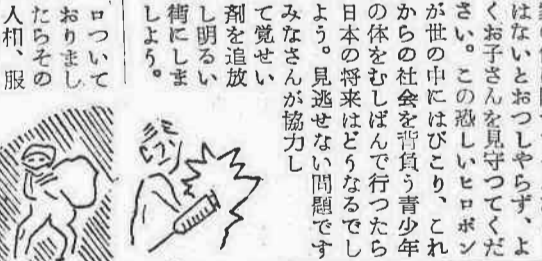 はないとおつしやらず、よ
くお子さんを見守つてくだ
さい。この恐しいヒロポン
が世の中にはびこり、これ
からの社会を背負う青少年
の体をむしばんで行つたら
日本の将来はどうなるでし
よう。見逃せない問題です
みなさんが協力し
て覚せい
剤を追放
し明るい
街にしま
しよう。
ロついて
おりまし
たらその
人相、服